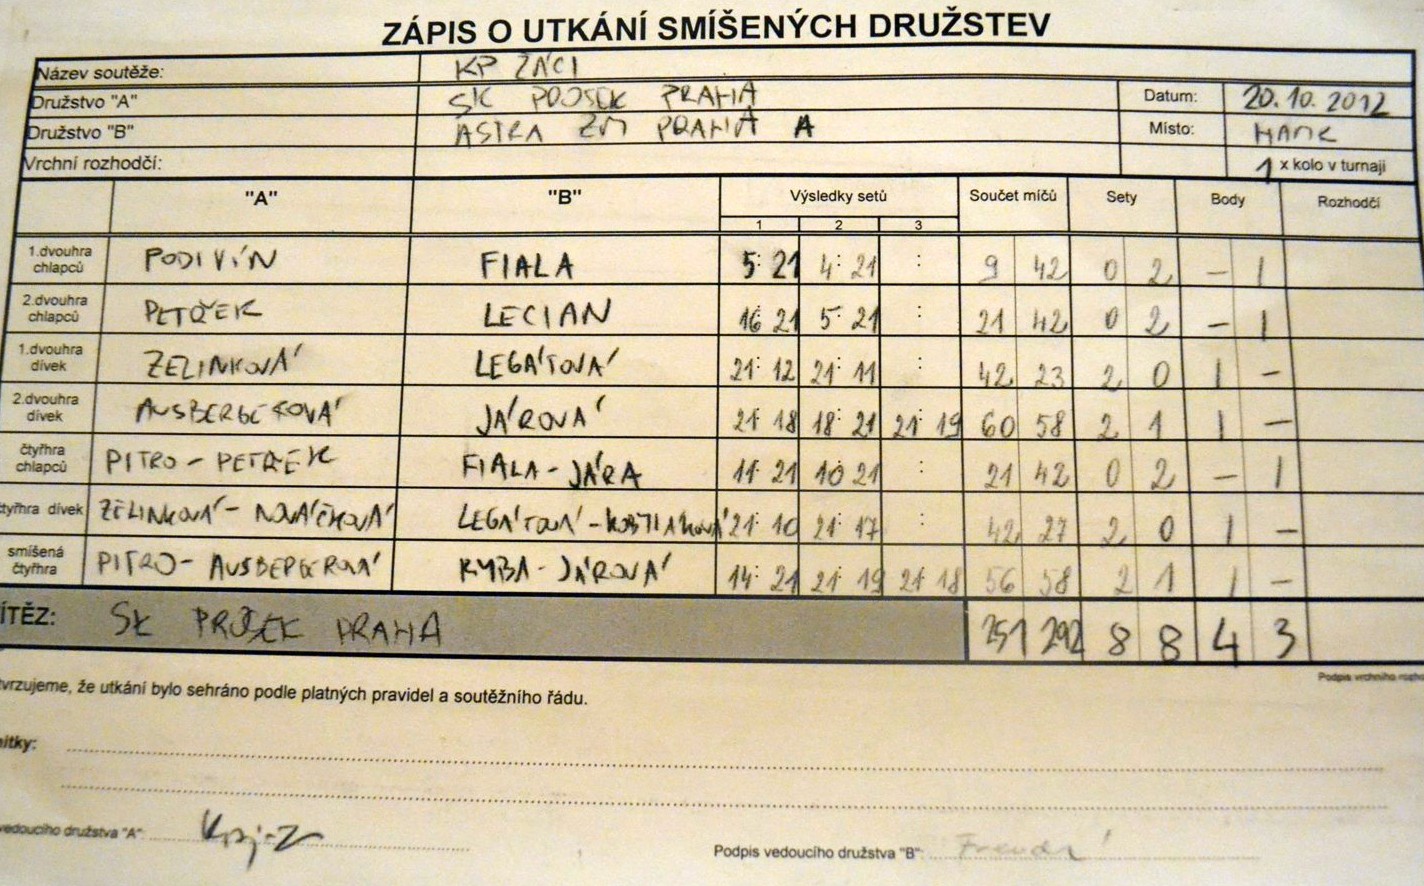 ZÁPIS O UTKÁNÍ SMÍŠENÝCH DRUŽSTEV
Název soutěže: KP ŽÁCI
Družstvo "A" SK PROSEK PRAHA Datum: 20.10.2012
Družstvo "B" ASTRA ZM PRAHA A Místo: HAMR
Vrchní rozhodčí: 1 x kolo v turnaji
"A" "B" Výsledky setů Součet míčů Sety Body Rozhodčí
1 2 3
1.dvouhra chlapců PODIVÍN FIALA 5:21 4:21 : 9 42 0 2 – 1
2.dvouhra chlapců PETŘEK LECIAN 16:21 5:21 : 21 42 0 2 – 1
1.dvouhra dívek ZELINKOVÁ LEGÁTOVÁ 21:12 21:11 : 42 23 2 0 1 –
2.dvouhra dívek AUSBERGEROVÁ JÁROVÁ 21:18 18:21 21:19 60 58 2 1 1 –
čtyřhra chlapců PITRO - PETREK FIALA - JÁRA 11:21 10:21 : 21 42 0 2 – 1
tyřhra dívek ZELINKOVÁ - NOVÁČKOVÁ LEGÁTOVÁ - KOŠTIAKOVÁ 21:10 21:17 : 42 27 2 0 1 –
smíšená čtyřhra PITRO - AUSBERGEROVÁ RYBA - JÁROVÁ 14:21 21:19 21:18 56 58 2 1 1 –
ÍTĚZ: SK PROSEK PRAHA 251 292 8 8 4 3
Podpis vrchního rozho
vrzujeme, že utkání bylo sehráno podle platných pravidel a soutěžního řádu.
itky:
vedoucího družstva "A":
Podpis vedoucího družstva "B":